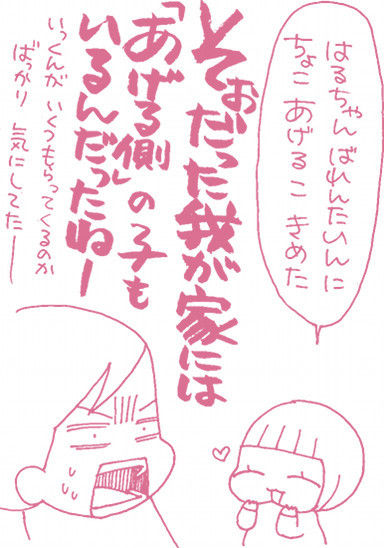 はるちゃん ばれんたいんに
ちょこ あげるこ きめた
そぉだった我が家には
「あげる側」の子も
いるんだったねー
いっくんが いくつもらってくるのか
ばっかり 気にしてたー